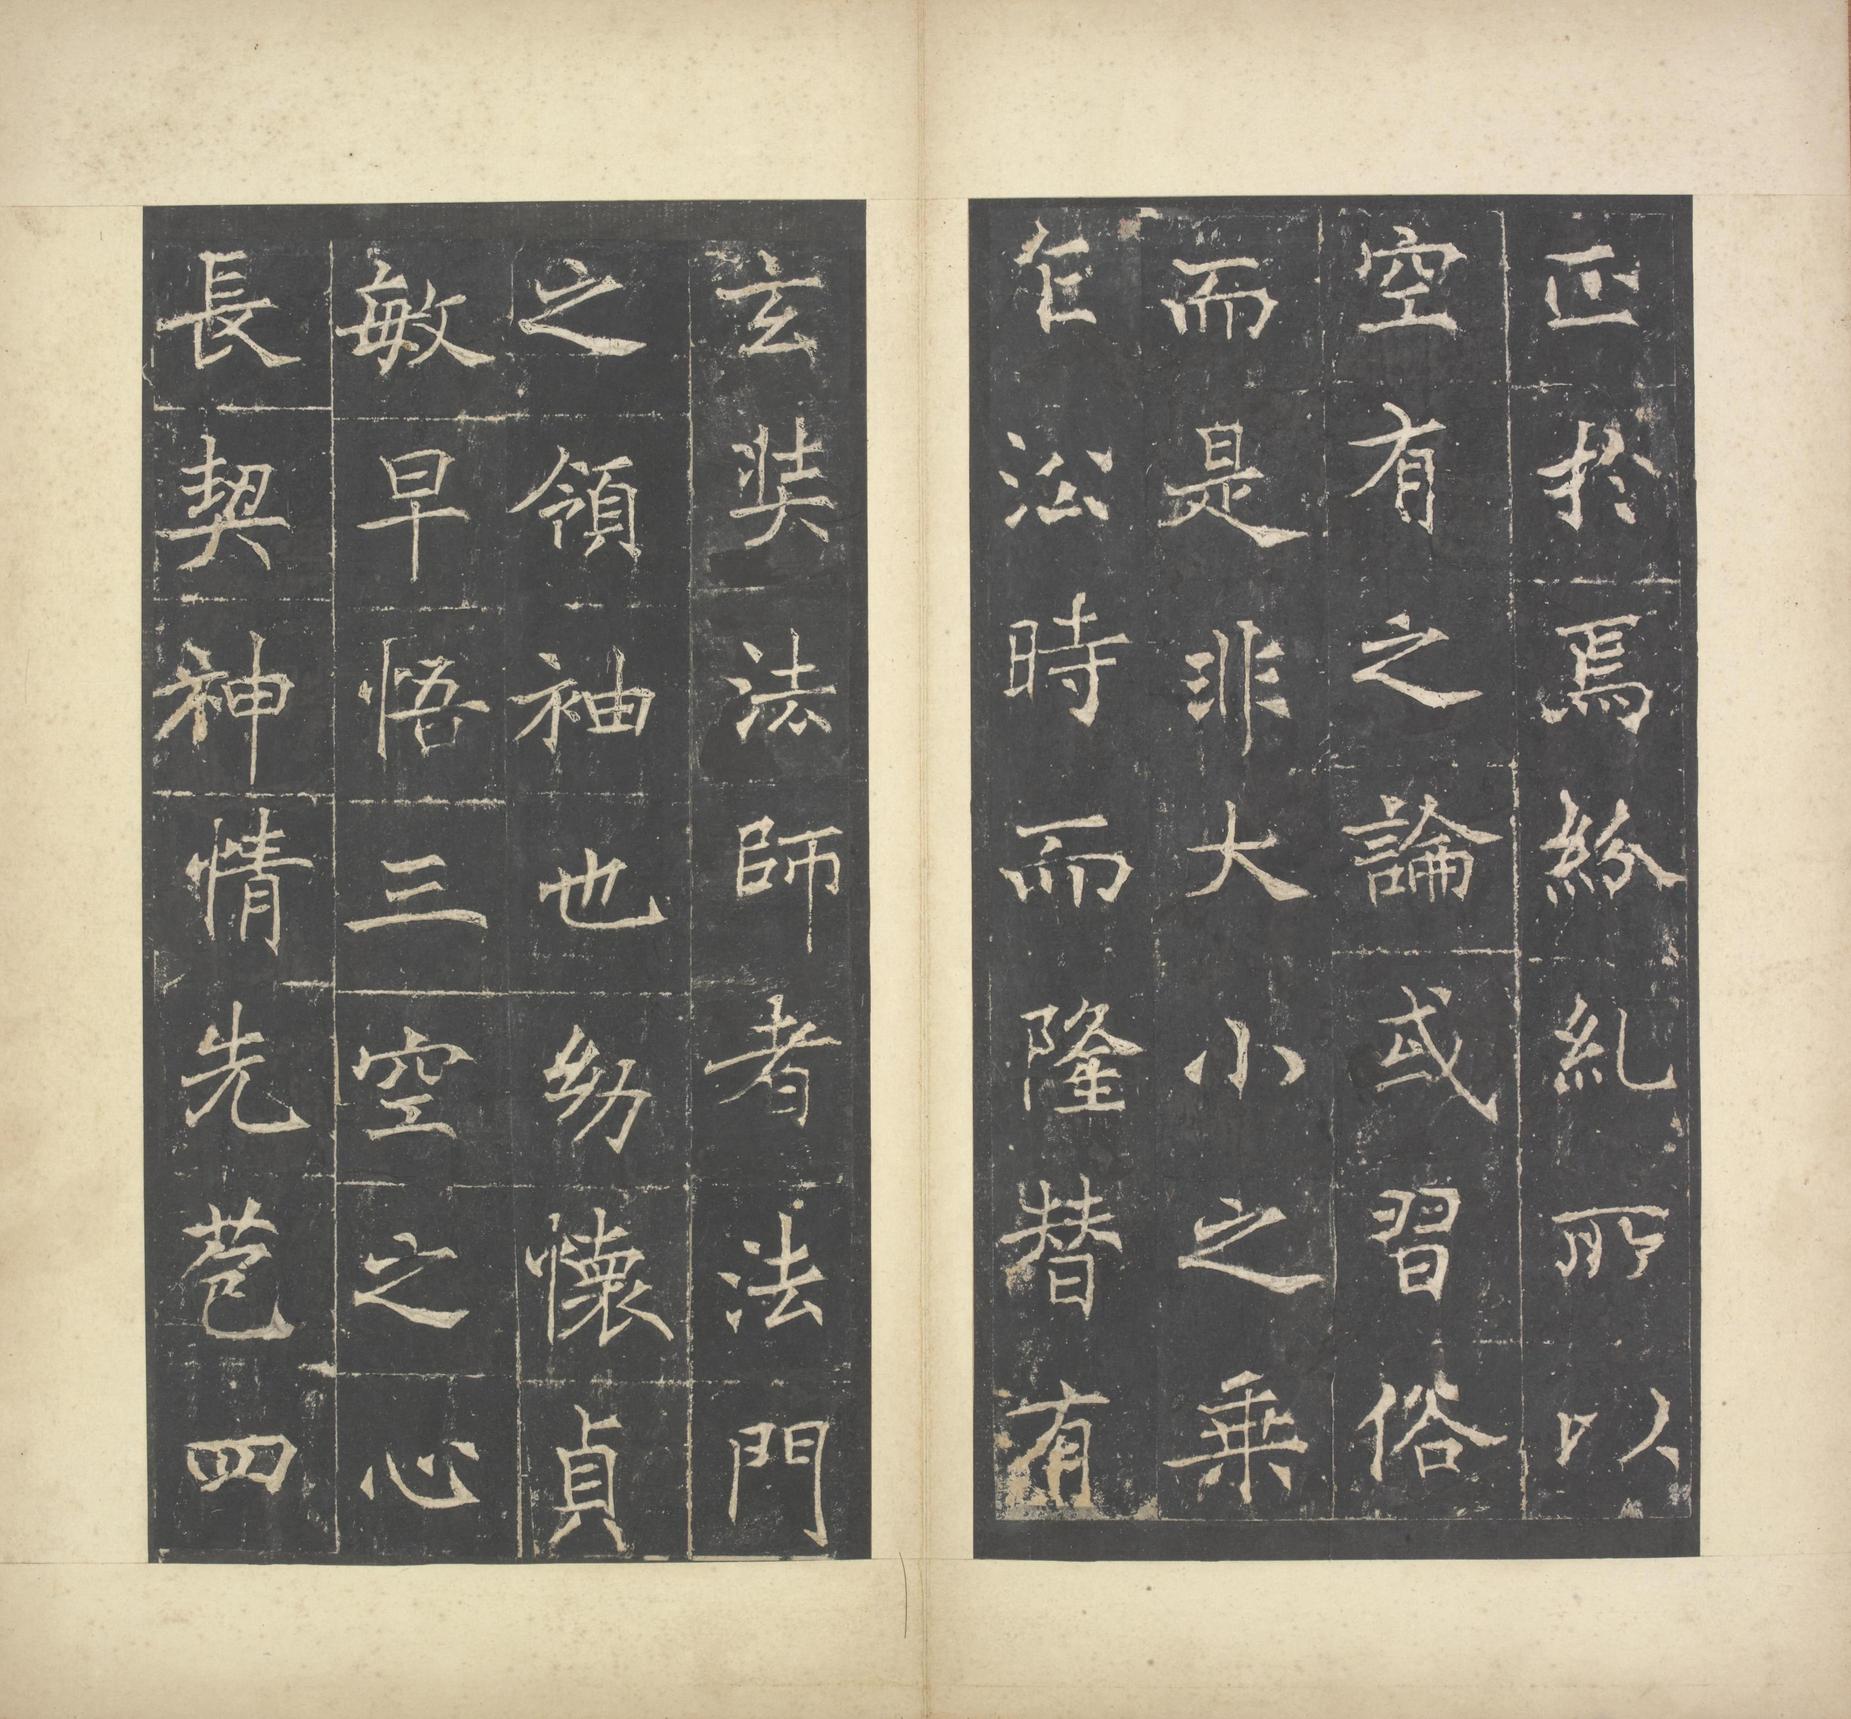 正於焉紛糺所以
空有之論或習俗
而是非大小之乗
乍㳂時而隆替有
玄奘法師者法門
之領袖也㓜懷貞
敏早悟三空之心
長契神情先苞四